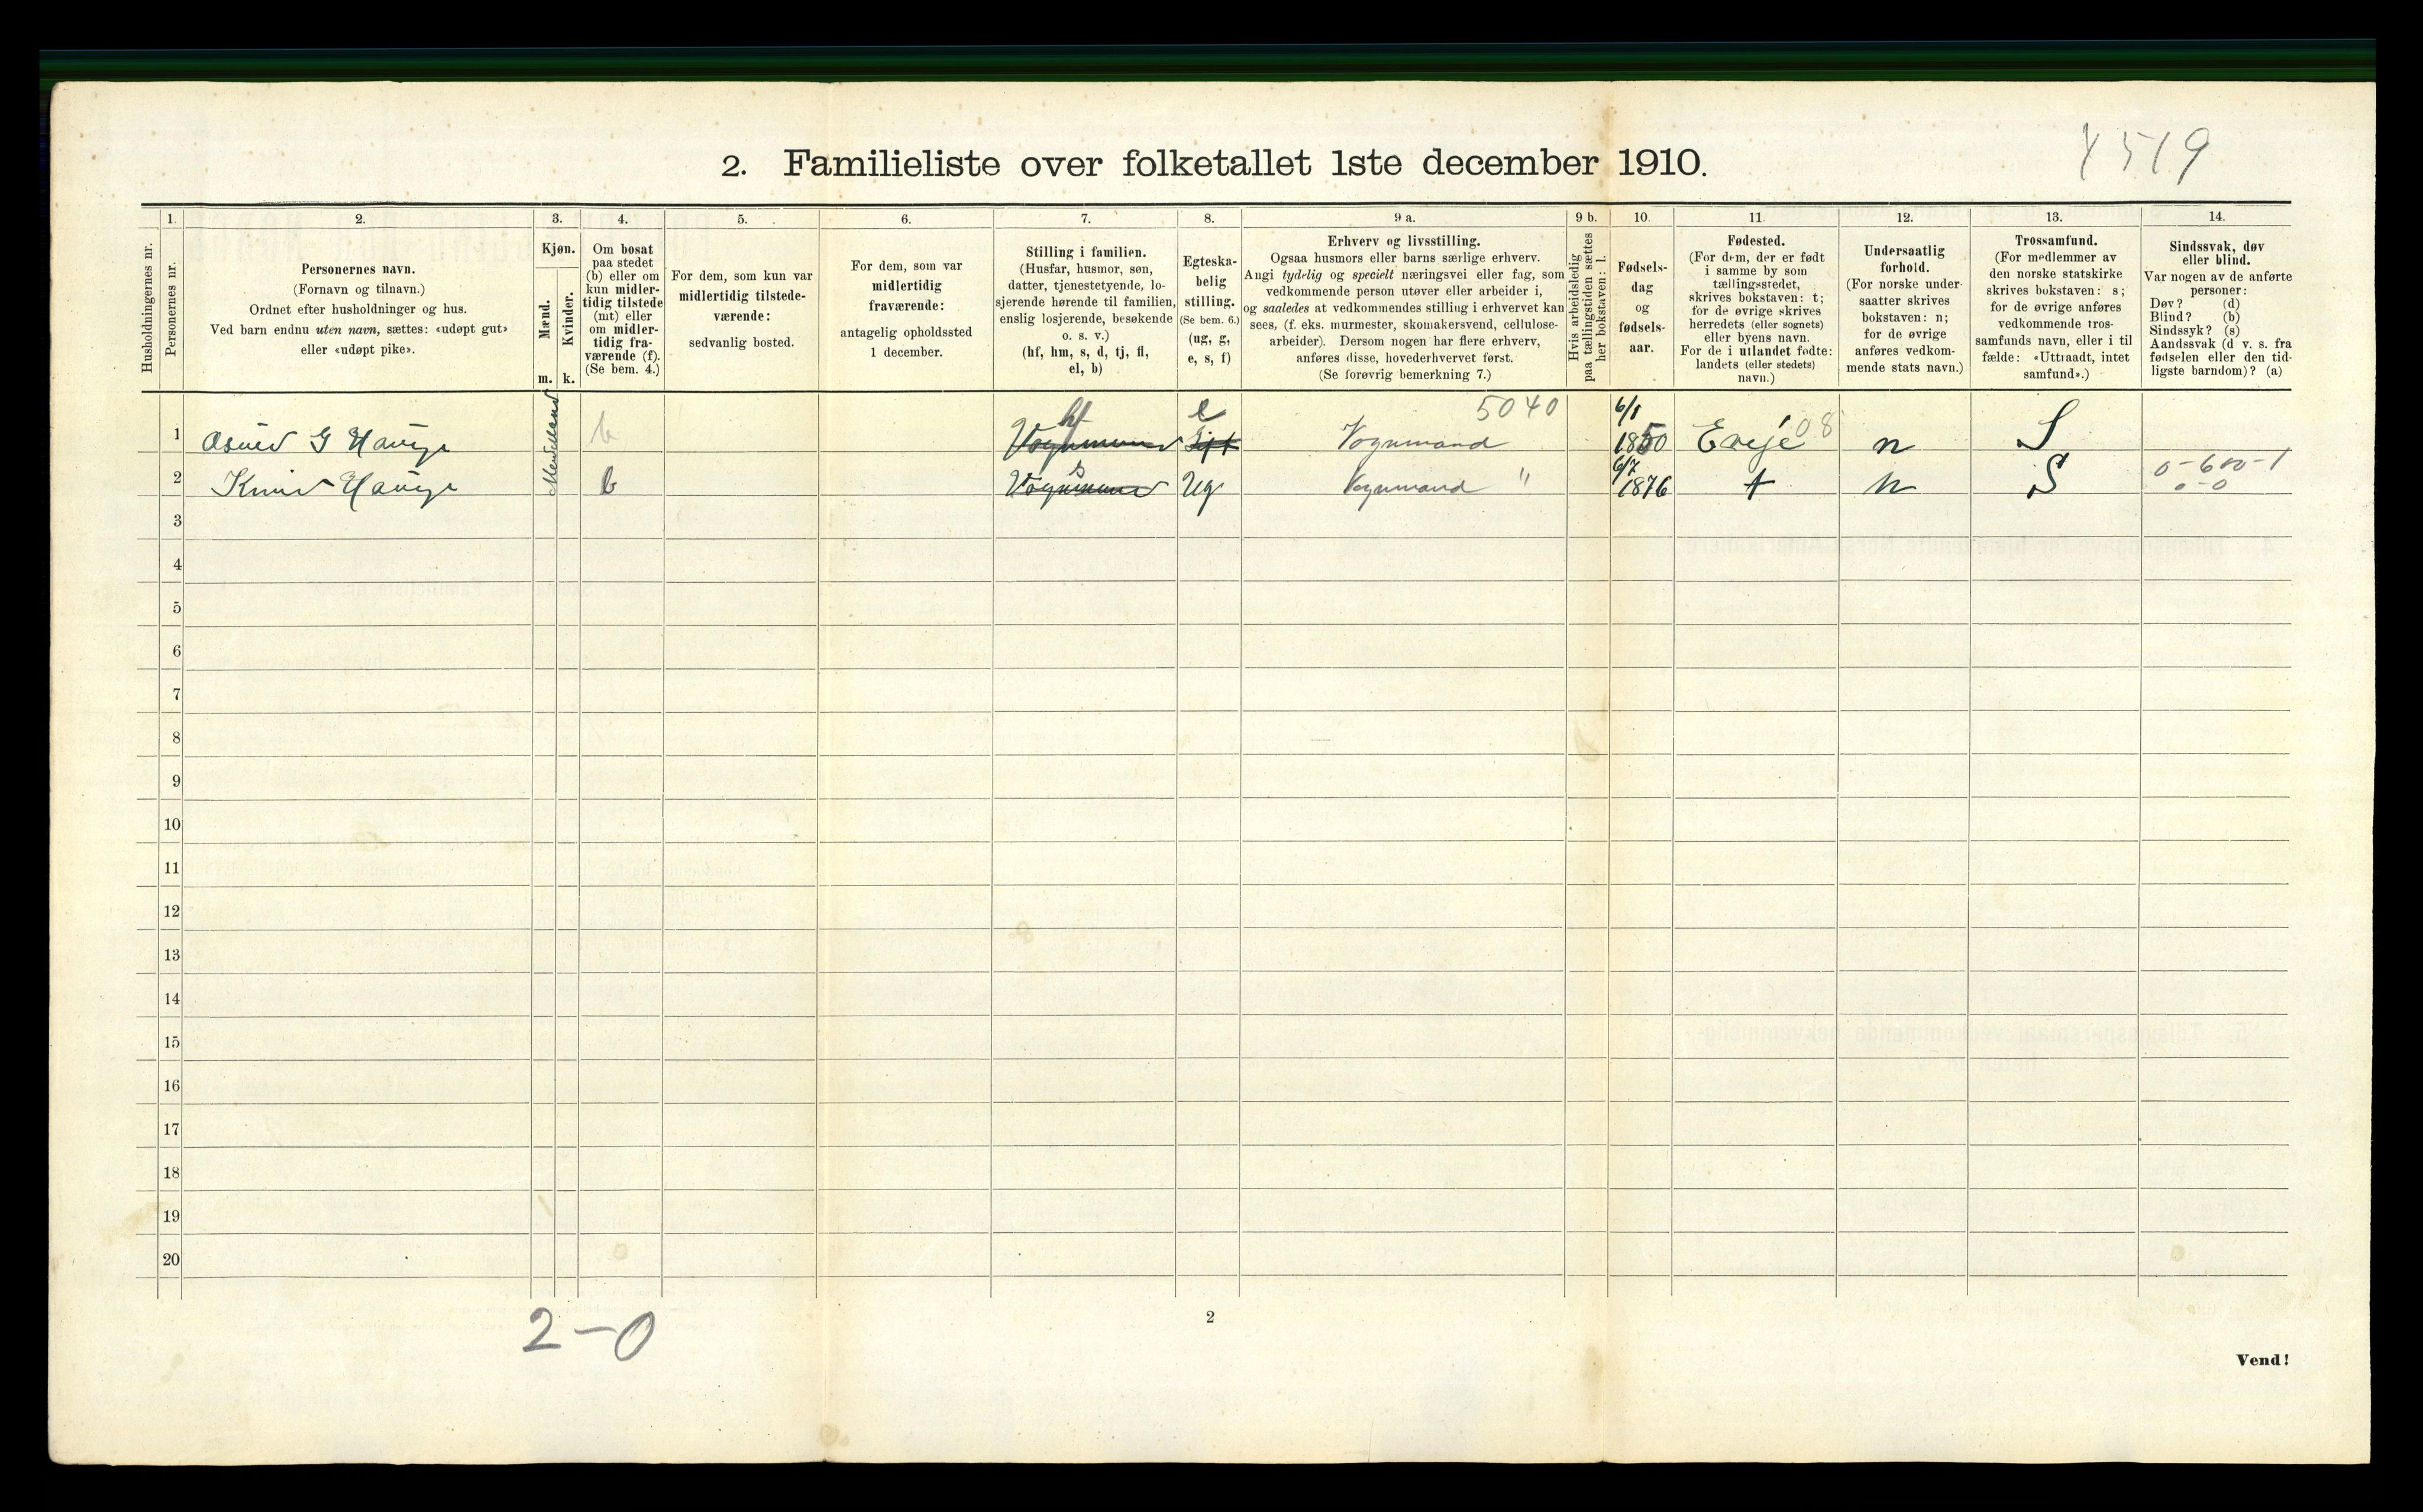 4519
2. Familieliste over folketallet 1ste december 1910.
Husholdningernes nr.
1. Personernes nr.
2. Personernes navn.
(Fornavn og tilnavn.)
Ordnet efter husholdninger og hus.
Ved barn endnu uten navn, sættes: «udøpt gut»
eller «udøpt pike».
3. Kjøn.
Mænd. Kvinder.
m. k.
4. Om bosat
paa stedet
(b) eller om
kun midler-
tidig tilstede
(mt) eller
om midler-
tidig fra-
værende (f).
(Se bem. 4.)
5. For dem, som kun var
midlertidig tilstede-
værende:
sedvanlig bosted.
6. For dem, som var
midlertidig
fraværende:
antagelig opholdssted
1 december.
7. Stilling i familien.
(Husfar, husmor, søn,
datter, tjenestetyende, lo-
sjerende hørende til familien,
enslig losjerende, besøkende
o. s. v.)
(hf, hm, s, d, tj, fl,
el, b)
8. Egteska-
belig
stilling.
(Se bem. 6.)
(ug, g,
e, s, f)
9 a. Erhverv og livsstilling.
Ogsaa husmors eller barns særlige erhverv.
Angi tydelig og specielt næringsvei eller fag, som
vedkommende person utøver eller arbeider i,
og saaledes at vedkommendes stilling i erhvervet kan
sees, (f. eks. murmester, skomakersvend, cellulose-
arbeider). Dersom nogen har flere erhverv,
anføres disse, hovederhvervet først.
(Se forøvrig bemerkning 7.)
9 b. Hvis arbeidsledig
paa tællingstiden sættes
her bokstaven: l.
10. Fødsels-
dag
og
fødsels-
aar.
11. Fødested.
(For dem, der er født
i samme by som
tællingsstedet,
skrives bokstaven: t;
for de øvrige skrives
herredets (eller sognets)
eller byens navn.
For de i utlandet fødte:
landets (eller stedets)
navn.)
12. Undersaatlig
forhold.
(For norske under-
saatter skrives
bokstaven: n;
for de øvrige
anføres vedkom-
mende stats navn.)
13. Trossamfund.
(For medlemmer av
den norske statskirke
skrives bokstaven: s;
for de øvrige anføres
vedkommende tros-
samfunds navn, eller i til
fælde: «Uttraadt, intet
samfund».)
14. Sindssvak, døv
eller blind.
Var nogen av de anførte
personer:
Døv? (d)
Blind? (b)
Sindssyk? (s)
Aandssvak (d v. s. fra
fødselen eller den tid-
ligste barndom)? (a)
1 G Hauge b hf e Vognmand 5040 6/1 1850 Eveje 08 n S
2 Knud Hauge b s Ug Vognmand " 6/7 1876 t n S
3
4
5
6
7
8
9
10
11
12
13
14
15
16
17
18
19
20
2-0
2
Vend!